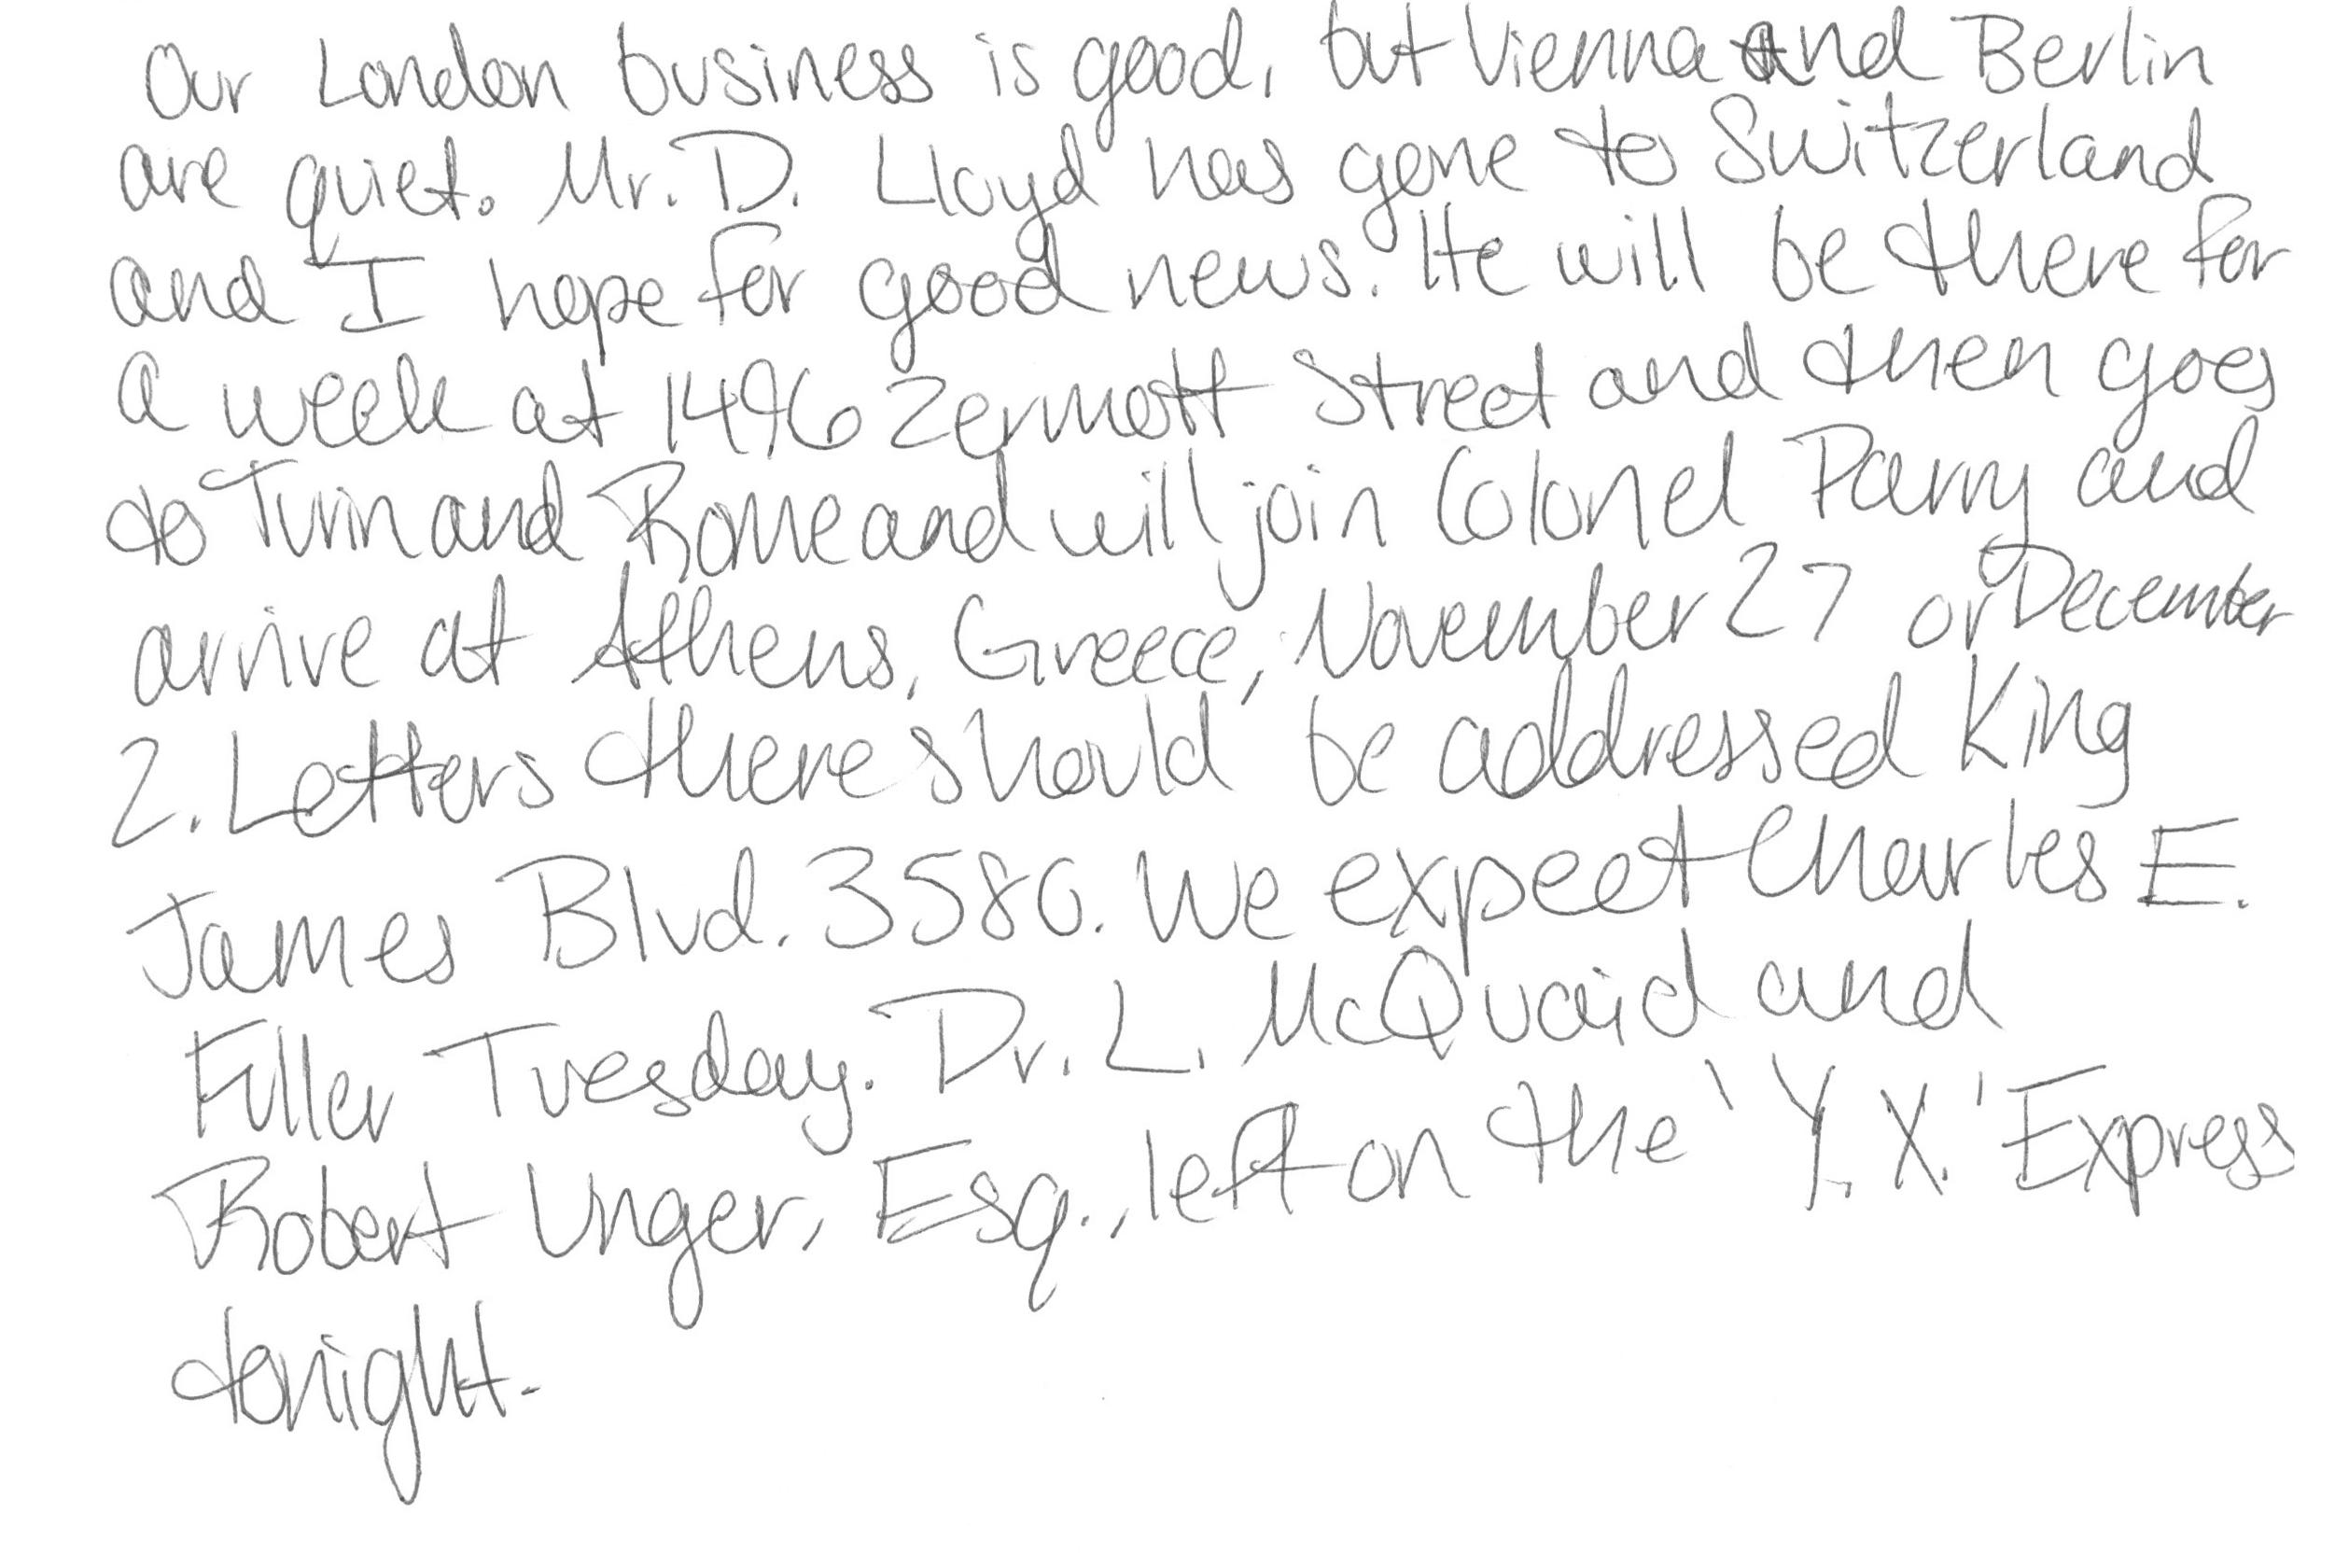 Our London business is good, but Vienna and Berlin
are quiet. Mr. D. Lloyd has gone to Switzerland
and I hope for good news. He will be there for
a week at 1496 Zermott Street and then goes
to Turin and Rome and will join Colonel Parry and
arrive at Athens, Greece, November 27 or December
2. Letters there should be addressed King
James Blvd. 3580. We expect Charles E.
Fuller Tuesday. Dr. L. McQuaid and
Robert Unger, Esq., left on the 'Y.X.' Express
tonight.